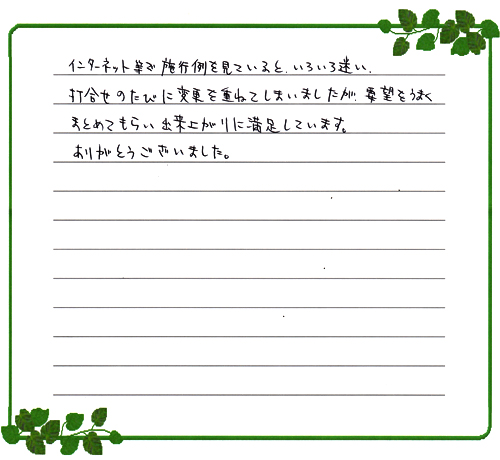 インターネット等で施行例を見ていると、いろいろ迷い、
打合せのたびに変更を重ねてしまいましたが、要望をうまく
まとめてもらい出来上がりに満足しています。
ありがとうございました。